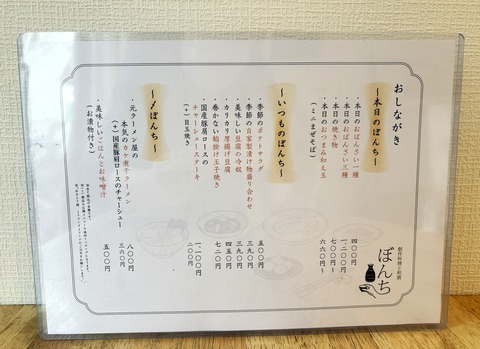 おしながき
〜本日のぼんち〜
・本日のおばんざい一種 四〇〇円
・本日のおばんざい三種 一、二〇〇円
・本日の焼き物 七〇〇円〜
・本日のおつまみ和え玉 六六〇円〜
(ミニまぜそば)
〜いつものぼんち〜
・季節のポテトサラダ 五〇〇円
・季節の自家製漬け物盛り合わせ 三九〇円
・美味しい豆腐の冷奴 三九〇円
・カリカリ厚揚げ豆腐 四五〇円
・巻かない餡掛け玉子焼き 七二〇円
・国産豚肩ロースの
チャーシューステーキ 一、二〇〇円
(+)目玉焼き 二〇〇円
〜〆ぼんち〜
・元ラーメン屋の
本気のカケ煮干ラーメン 八〇〇円
(+)国産豚肩ロースのチャーシュー 三六〇円
・美味しいごはんとお味噌汁 五〇〇円
(お漬物付き)
創作料理と佐酒
ぼんち